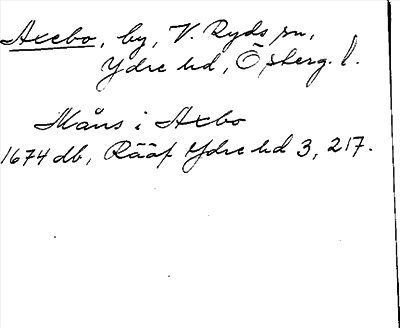 Axebo, by, V. Ryds sn,
Ydre hd, Östergl.
Måns i Axbo
1674 db, Rääf Ydre hd 3, 217.